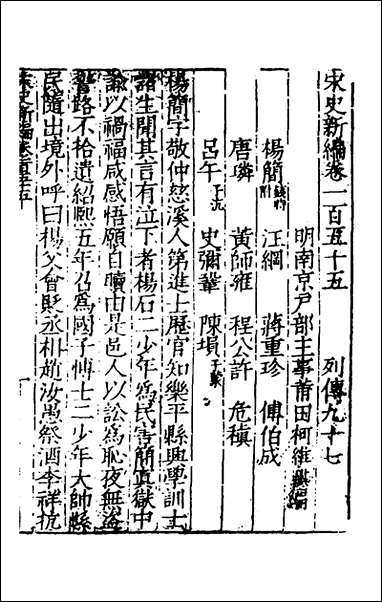 宋史新編卷一百五十五 列傳九十七
明南京戶部主事莆田柯維騏編
楊簡 錢時附 汪綱 蔣重珍 傅伯成
唐璘 黃師雍 程公許 危稹
呂午 子沆 史彌鞏 陳塤 子蒙
楊簡字敬仲慈溪人第進士歷官知樂平縣興學訓士
諸生聞其言有泣下者楊石二少年為民害簡寘獄中
諭以禍福咸感悟願自贖由是邑人以訟為恥夜無盜
警路不拾遺紹熙五年召為國子博士二少年大帥縣
民隨出境外呼曰楊父會貶丞相趙汝愚祭酒李祥抗
宋史新編卷一百五十五
一